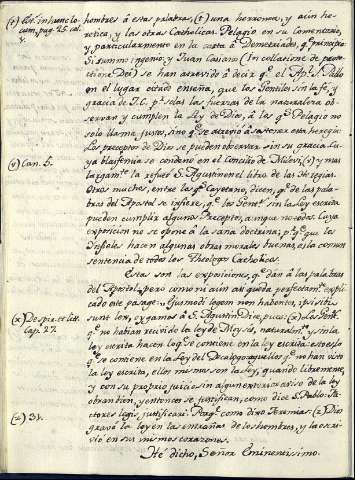 (t) Cor. in hunc lo-
cum, pag. 25. col.
v.
hombres à estas palabras, (t) una herronea, y aún he-
retica, y las otras Catholicas. Pelagio en su comentario,
y particularmente en la carta à Demetriades, qe. principia
Si summo ingenio: y Juan Casiano (in collatione de prote-
ctione Dei) se han atrevido à decir, qe. el Apl. S. Pablo
en el lugar citado enseña, que los Gentiles sin la fè, y
gracia de J.C. pr. solas las fuerzas de la naturaleza ob-
servan y cumplen la Ley de Dios, à los qe. Pelagio no
solo llama justos, sino qe. se atreviò à sostener esta heregia:
Los preceptos de Dios se pueden observar sin su gracia. Cu-
(v) Can. 5.
ya blasfemia se condenò en el Concilio de Milevi, (v) y mas
largamte. la refutò S. Agustin en el libro de las Heregias.
Otros muchos, entre los qe. Cayetano, dicen, qe. de las pala-
bras del Apostol se infiere, qe. los Gentiles sin la Ley escrita
pueden cumplir algunos Preceptos, aunque no todos. Cuya
exposicion no se opone à la sana doctrina; pr. qe. que los
Infieles hacen algunas obras morales buenas, es la comun
sentencia de todos los Theologos Catholicos.
Estas son las exposiciones, qe. dàn à las palabras
del Apostol, pero como ni aun asi queda perfectamte. expli-
cado este pasage: Ejusmodi legem non habentes, ipsi sibi
sunt lex, oygamos à S. Agustin. Dice, pues: (x) Los Gent.
(x) De spir. et litt.
cap. 27.
qe. no habian recivido la ley de Moysès, naturalmte. y sin la
ley escrita hacen lo qe. se contiene en la ley escrita: esto es lo
qe. se contiene en la Ley del Decalogo: aquellos qe. no han visto
la ley escrita, ellos mismos son la Ley, quando libremente,
y con su proprio juicio sin algun exterior aviso de la ley
obran bien, y entonces se justifican, como dice S. Pablo: Fa-
ctores legis justificari. Porqe. como dixo Jeremias: (z) Dios
(z) 31.
gravò la ley en las entrañas de los hombres, y la escri-
viò en sus mismos corazones.
Hè dicho, Señor Eminentisimo.